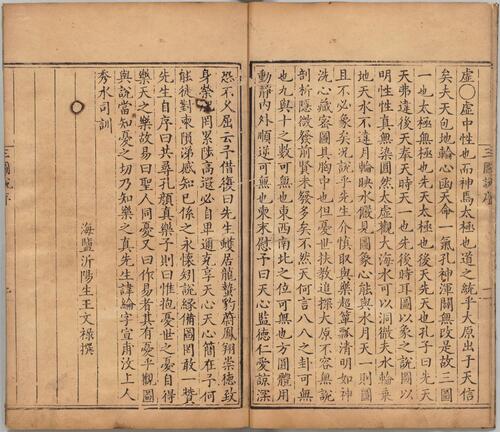 虛〇虛中性也而神焉太極也道之統乎大原出于天信
矣夫天包地輪心函天命一氣孔神渾闢無改是故三圖
一也太極無極也先天太極也後天先天也孔子曰先天
天弗違後天奉天時天一也先後時耳圖以象之說圖以
明性性真無染圖然太虛觀大海水可以洞微天水輪乘
地天水不違月輪映水儼見圖象心能與水月天一則圖
且不必象矣況說乎先生介慎取與樂超簞瓢清明如神
洗心藏密圖具胸中也但憂世扶教追探大原不容無說
剖析隱微發前賢未發多矣不然天何言八八之卦可無
也九與十之數可無也東西南北之位可無也方圓體用
動靜內外順逆可無也柬末慰予曰天心監德仁愛諒深
三圖說序
恐不乂屈云予借復曰先生蠖居龍蟄豹蔚鳳翔崇德致
身榮罔累陟高遐必自卑邇克享天心天心簡在予何
能徒對柬隕涕感知已係之永懷矧說緣備圖罔敢一贊
先生自序曰共尋孔顏真樂子則曰惟抱憂世之憂自得
樂天之樂故易曰聖人同憂又曰作易者其有憂乎觀圖
與說當知憂之切乃知樂之真先生諱綸字宣甫汶上人
秀水司訓
海鹽沂陽生王文祿撰
三圖說序